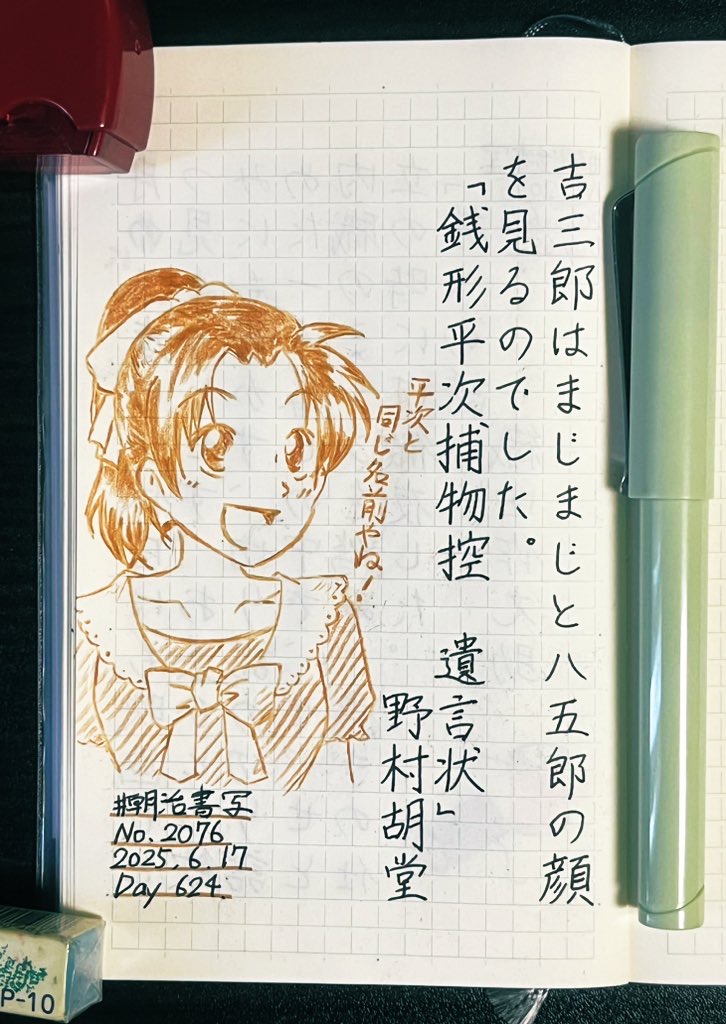 吉三郎はまじまじと八五郎の顔
を見るのでした。
「銭形平次捕物控　遺言状」
野村胡堂
平次と
同じ名前やね!
#朝治書写
No. 2076
2025. 6. 17
Day 624.
P-10